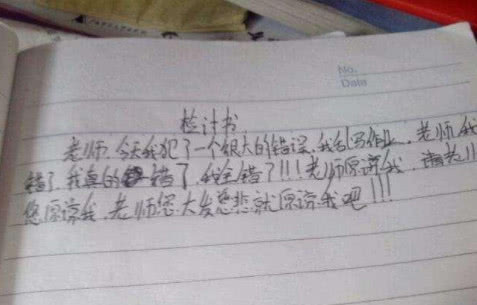 No.
Date
检讨书
老师.今天我犯了一个很大的错误.我乱写作业.老师我
错了.我真的错了.我全错了!!!老师原谅我.请老师
您原谅我.老师您大发慈悲就原谅我吧!!!